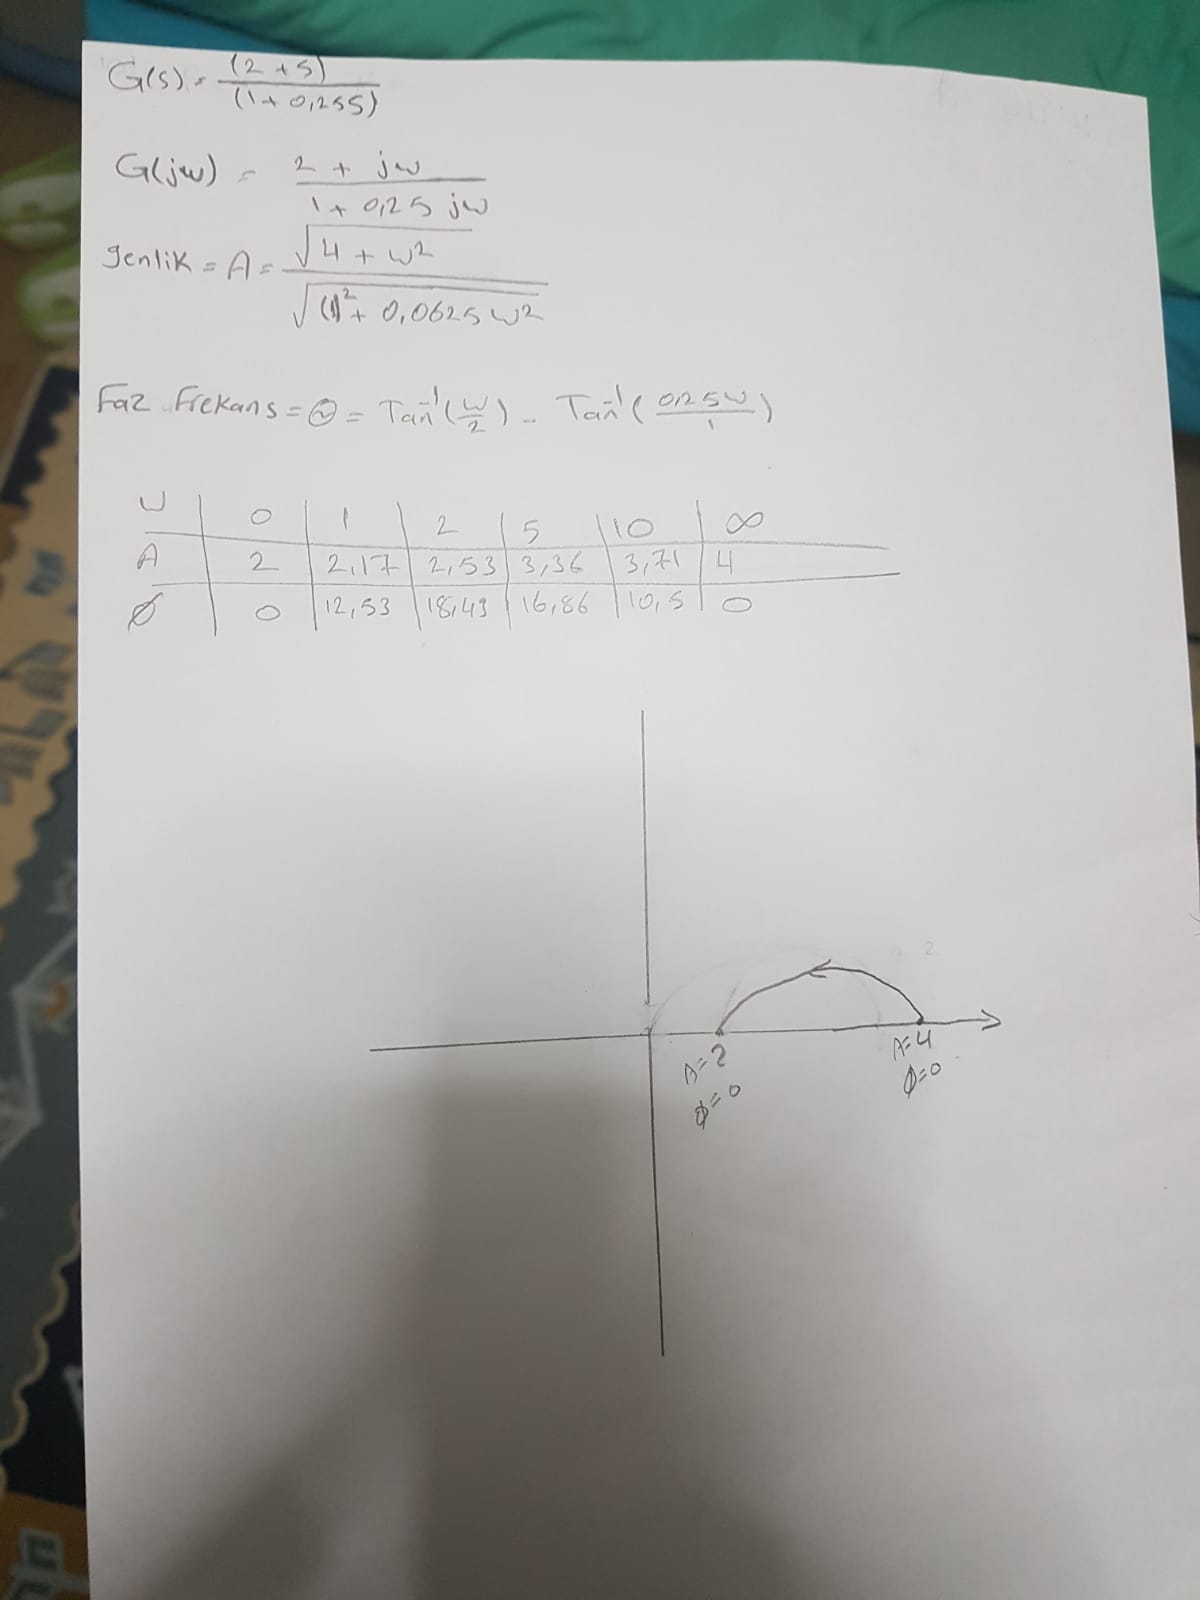 G(s) = (2+s)
(1+0,25s)
G(jw) = 2 + jw
1+ 0,25 jw
genlik = A = √4 + w2
√(1)2 + 0,0625 w2
Faz Frekans = Ø = Tan-1(w/2) - Tan-1(0,25w/1)
w 0 1 2 5 10 ∞
A 2 2,17 2,53 3,36 3,71 4
Ø 0 12,53 18,43 16,86 10,5 0
A=2
Ø=0
A=4
Ø=0